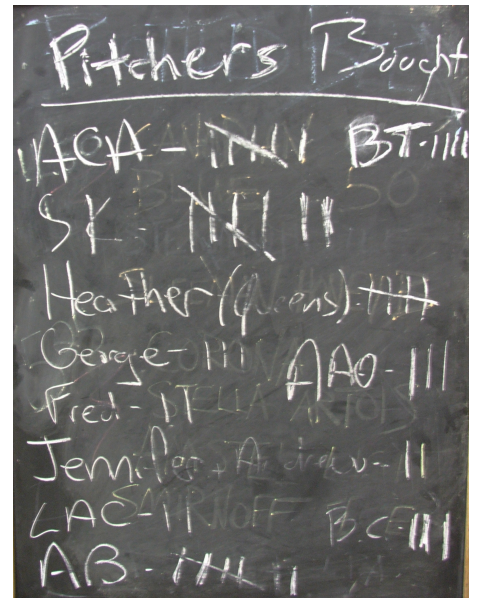 Pitchers Bought
ACA - IIII I BT-IIII
SK - IIII II
Heather (Queens) - IIII
George - IIII AAO - III
Fred - II
Jennifer + Andrew - II
LAC - II B.C III
AB - IIII II